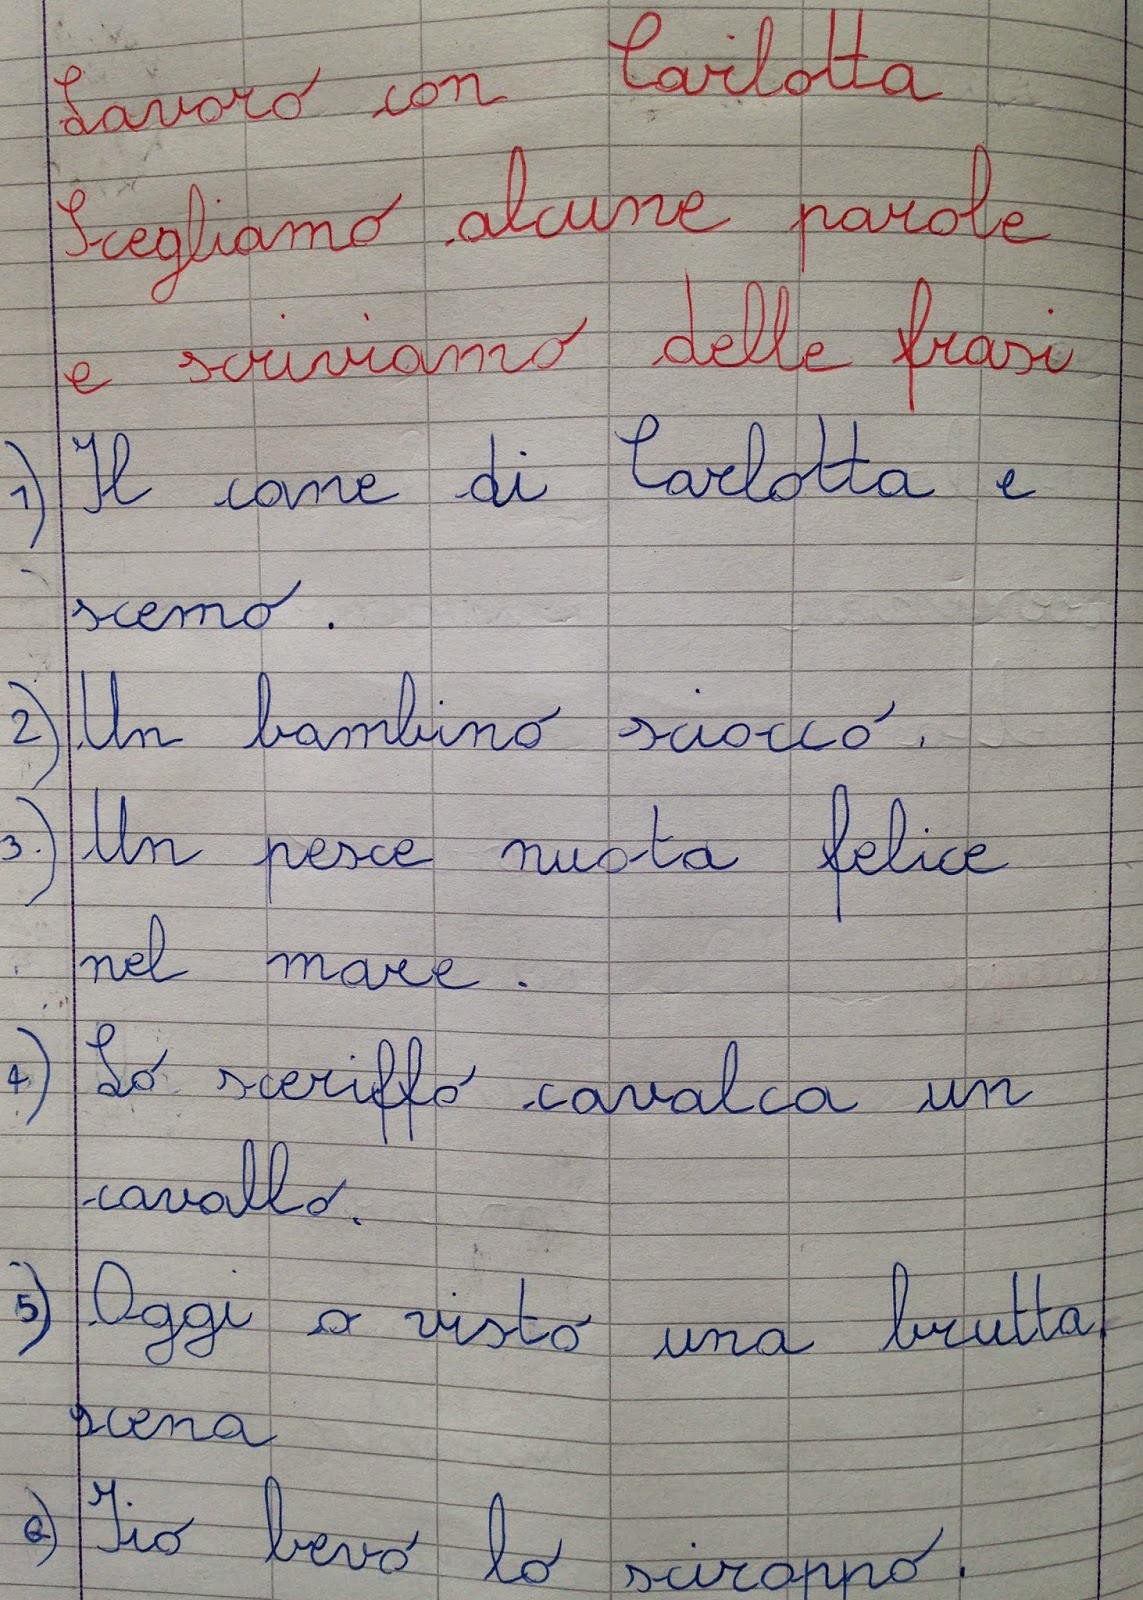 Lavoro con Carlotta
Scegliamo alcune parole
e scriviamo delle frasi
1) Il cane di Carlotta e
scemo.
2) Un bambino sciocco.
3.) Un pesce nuota felice
nel mare.
4) Lo sceriffo cavalca un
cavallo.
5) Oggi o visto una brutta
scena
6) Iio bevo lo sciroppo.